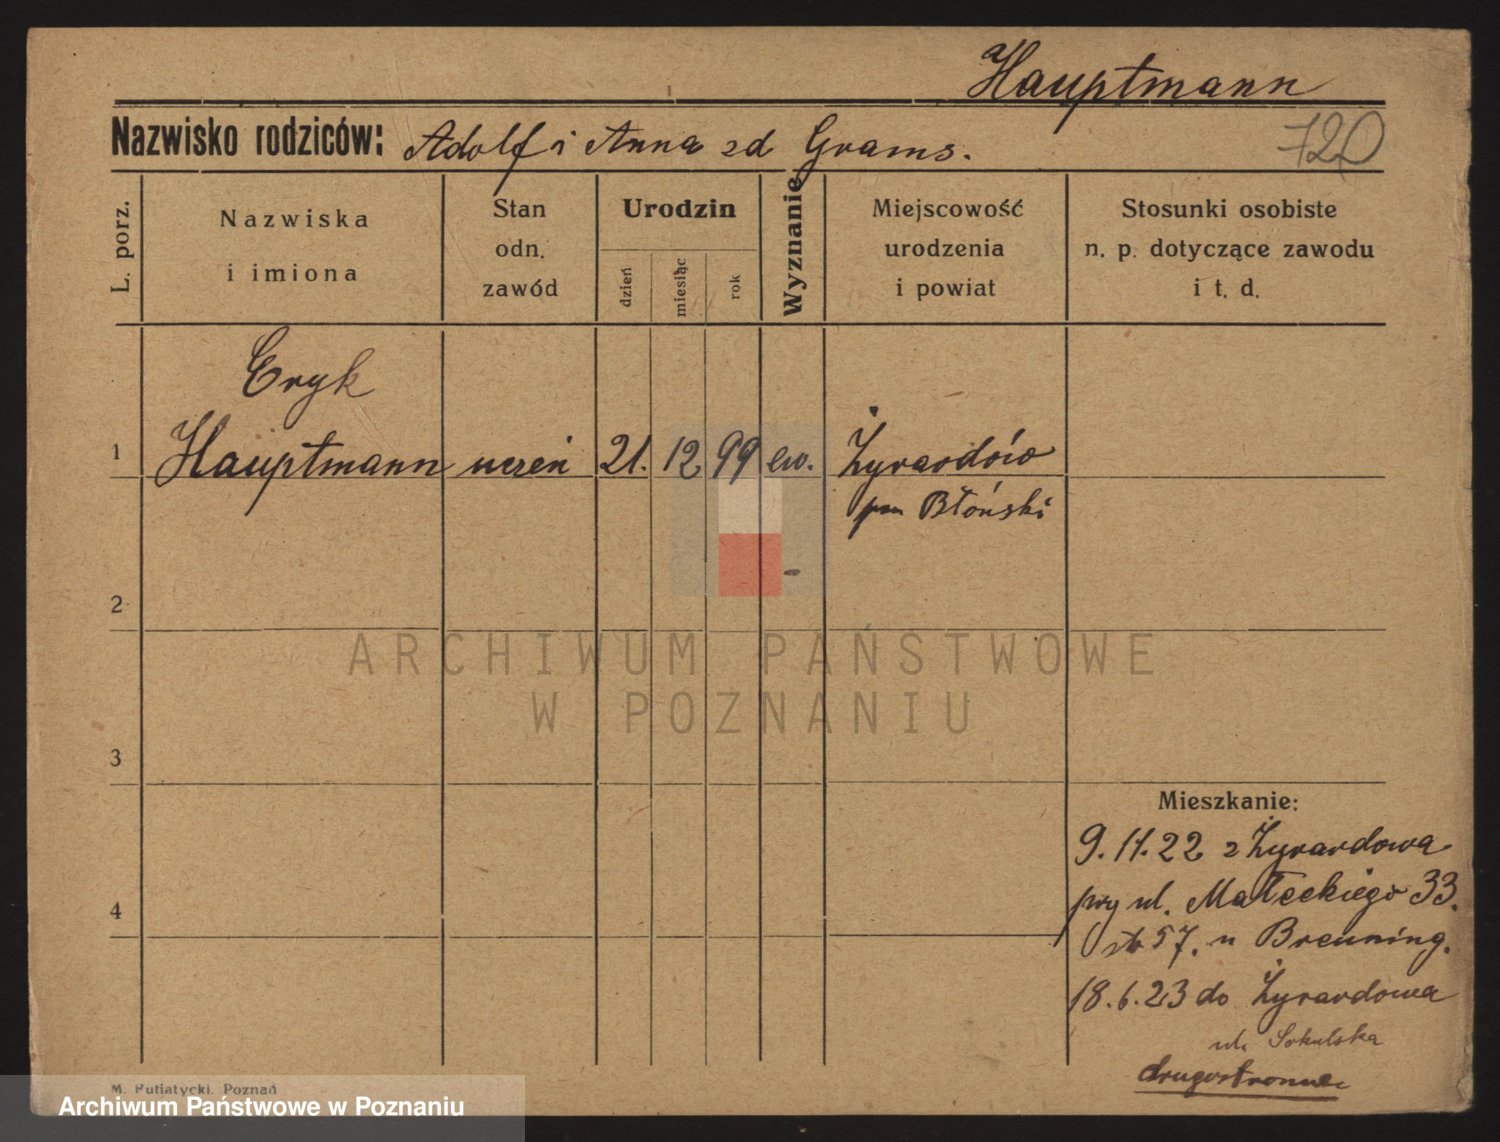 Hauptmann
Nazwisko rodziców: Adolf i Anna zd Grams.
720
L. porz.
Nazwiska
i imiona
Stan
odn.
zawód
Urodzin
dzień
miesiąc
rok
Wyznanie
Miejscowość
urodzenia
i powiat
Stosunki osobiste
n. p. dotyczące zawodu
i t. d.
Eryk
1 Hauptmann uczeń 21. 12 99 ew. Żyrardów
pow Błoński
2
ARCHIWUM PAŃSTWOWE
W POZNANIU
3
Mieszkanie:
9.11.22 z Żyrardowa
przy ul. Małeckiego 33.
57. u Breuning.
4
18.6.23 do Żyrardowa
ul. Sokulska
drugostronnie
M. Putiatycki, Poznań
Archiwum Państwowe w Poznaniu